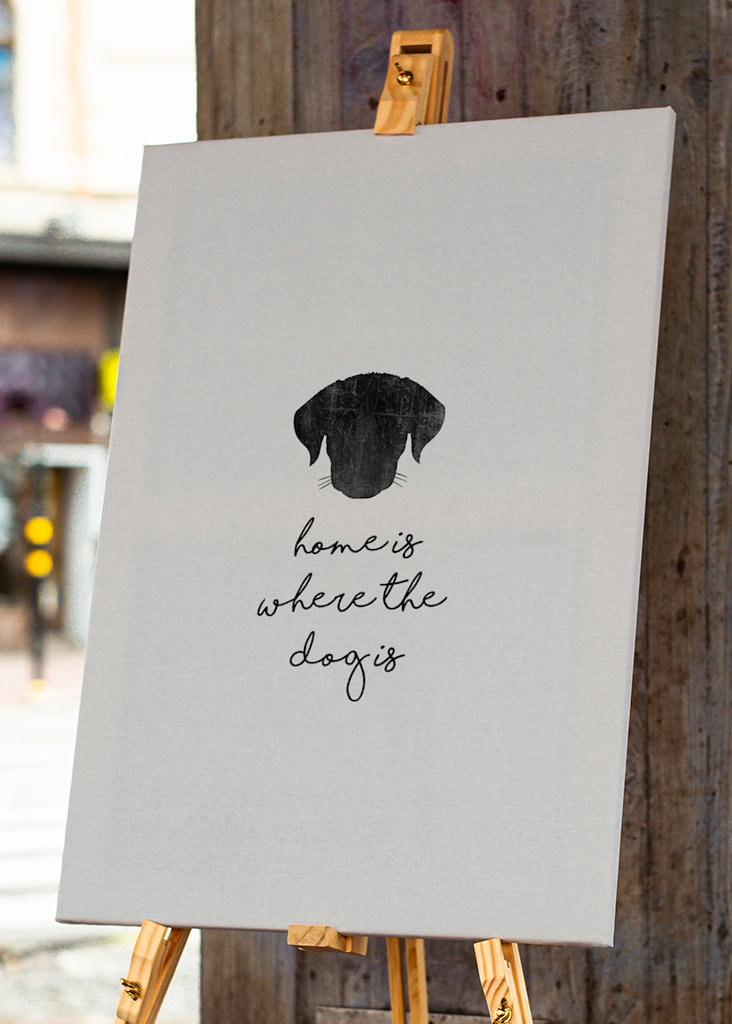 home is
where the
dog is